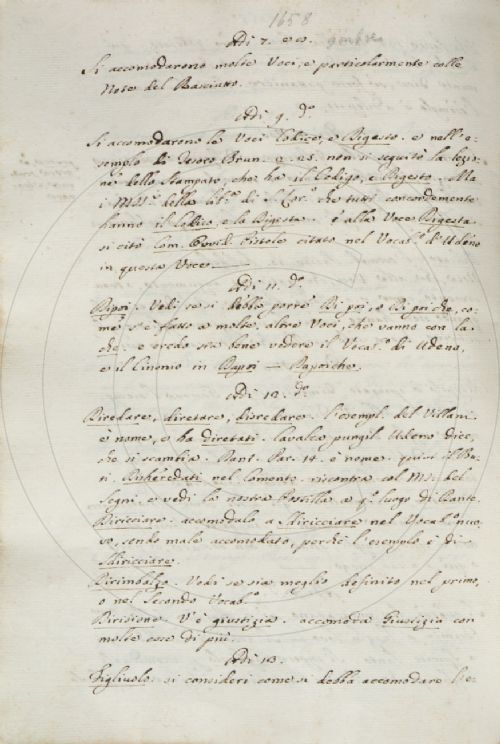 1658
Adi 7.
Si accomodarono molte Voci, e particolarmente colle
Note del
Adi 9. dº.
Si accomodarono le Voci Codico, e Digesto. e nell'e-
semplo di Tesoro Brun. 2. 25. non si seguitò la lezio-
ne dello Stampato, che ha il Codigo, e Digesto. Ma
i MSS.ⁱ della lib.ª di S. Lor.º che tutti concordemente
hanno il Codico, e la Digesta. e alla Voce Digesta
si citò Com. Pistole citato nel Vocab.º d'Udeno
in questa Voce.
Adi 11. dº.
Dipoi. Vedi se si debbe porre Di poi, e Di poi che, co-
me s'è fatto a molte altre Voci, che vanno con la
che. e credo sia bene vedere il Vocab.º di Udeno,
e il Cinonio in Dapoi — Dapoiche.
Adi 12. dº.
Diredare, diretare, disredare. l'esempl. del Villani
è nome, e ha diretati. Cavalca pungil. Udeno dice,
che si scambia. Dant. Par. 14. è nome.
Disheredati nel Comento. riscontra col MS. del
Segni, e vedi la nostra Postilla a qº. luogo di Dante.
Diricciare. accomodalo a Sdiricciare nel Vocab.º nuo-
vo, sendo male accomodato, perchè l'esemplo è di
Sdiricciare.
Dirimbalzo. Vedi se sia meglio definito nel primo,
o nel secondo Vocab.º
Dirisione V'è giustizia. accomoda Giustizia con
molte cose di più.
Adi 13.
Figliuolo. si consideri come si debba accomodare l'e-